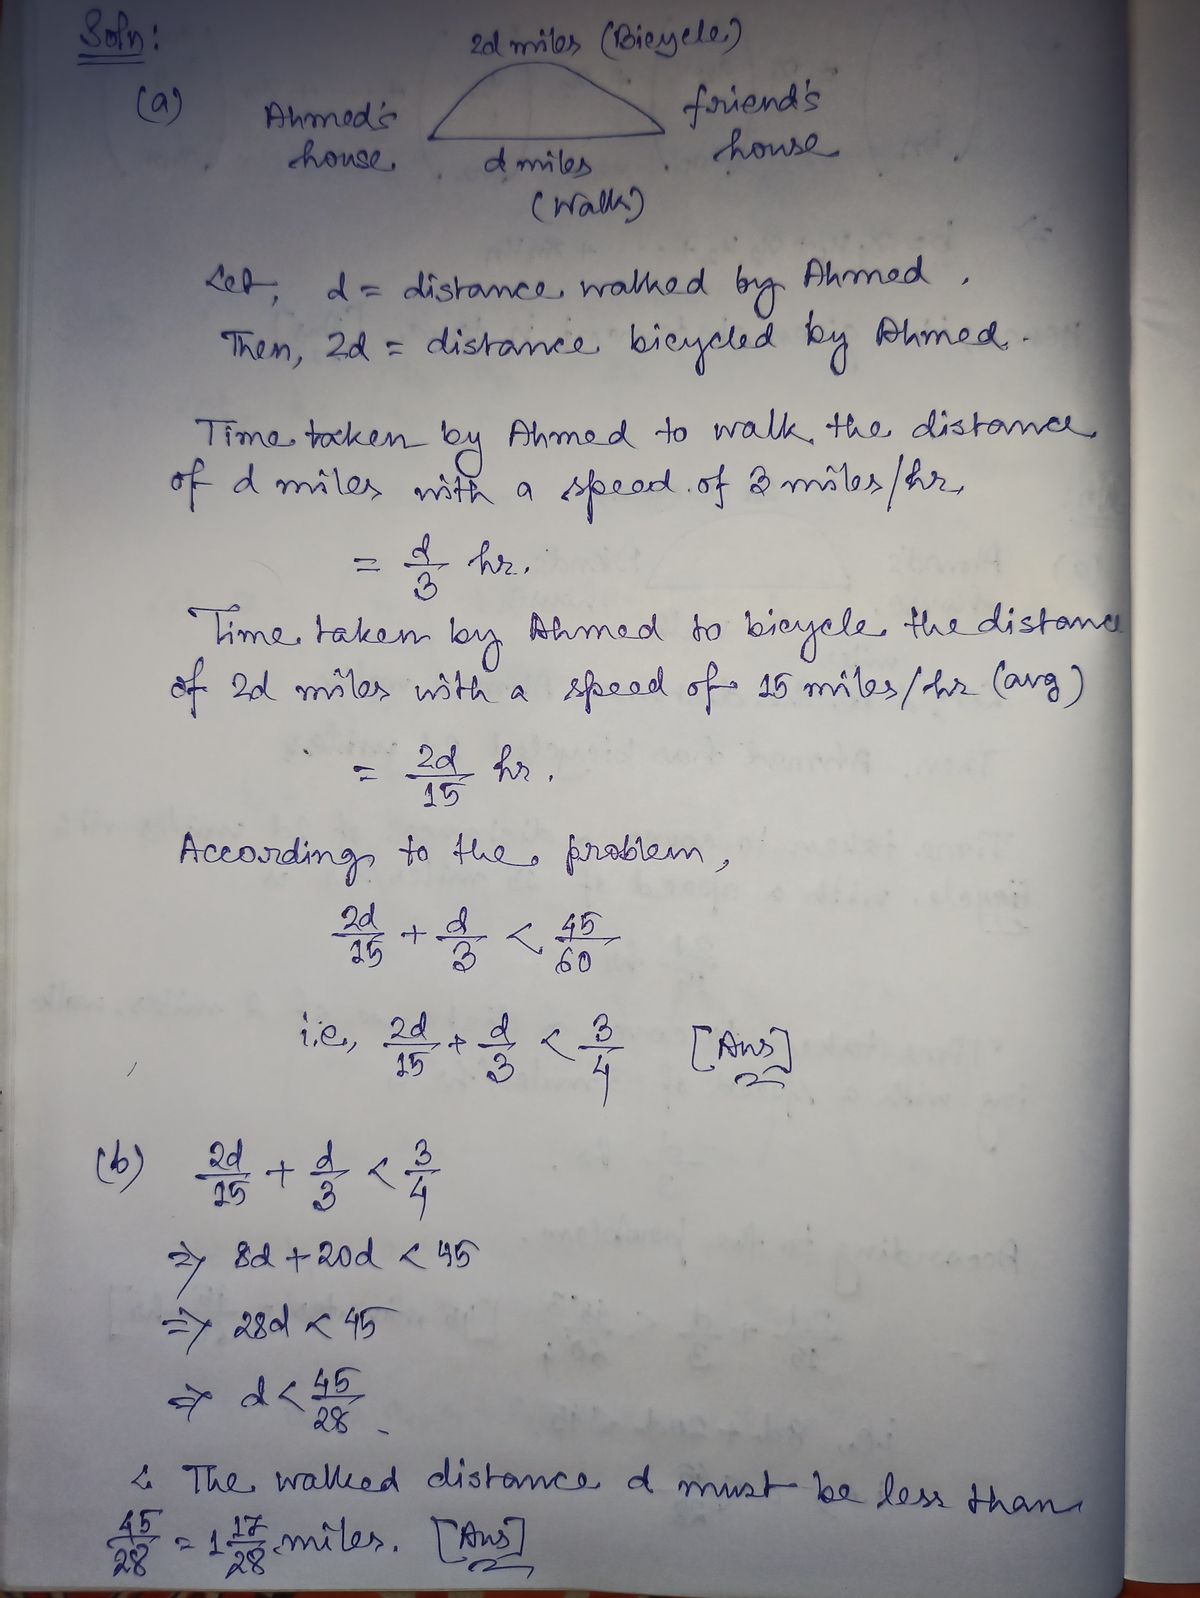 Soln:
2d miles (Bicycle)
(a) Ahmed's house friend's house
d miles
(Walk)
Let, d = distance walked by Ahmed.
Then, 2d = distance bicycled by Ahmed.
Time taken by Ahmed to walk the distance
of d miles with a speed of 3 miles/hr
= d/3 hr.
Time taken by Ahmed to bicycle the distance
of 2d miles with a speed of 15 miles/hr (avg)
= 2d/15 hr.
According to the problem,
2d/15 + d/3 < 45/60
i.e, 2d/15 + d/3 < 3/4 [Ans]
(b) 2d/15 + d/3 < 3/4
⇒ 8d + 20d < 45
⇒ 28d < 45
⇒ d < 45/28.
∴ The walked distance d must be less than
45/28 = 1 17/28 miles. [Ans]